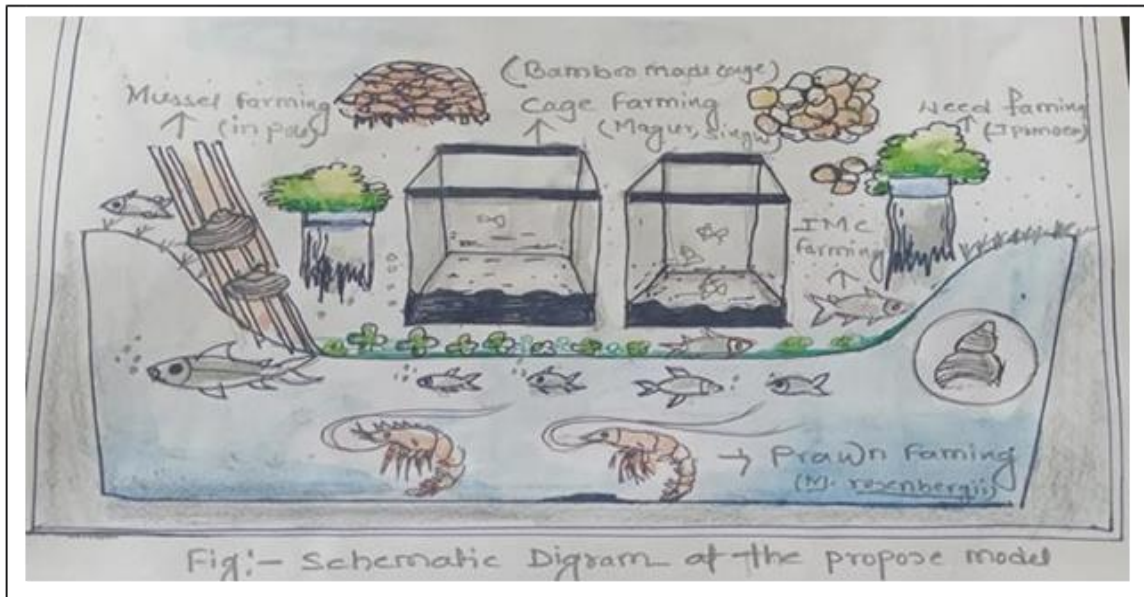 Mussel farming
(in pole)
(Bamboo made cage)
Cage farming
(Magur, Singi)
Weed farming
(Ipomoea)
IMC
farming
Prawn Faming
(M. rosenbergii)
Fig:- Schematic Digram at the propose model